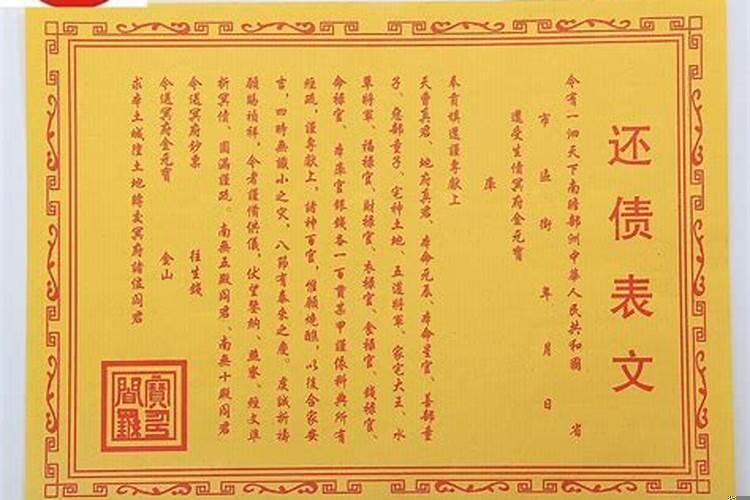 还债表文
今有一泗天下南瞻部洲中華人民共和國 省
市 區 街 年 月 日
還受生債冥府金元寶
庫
奉有填還謹專獻上
天曹真君、地府真君、本命元辰、本命星官、善部童
子、惡部童子、宅神土地、五道將軍、家宅大王、水
草將軍、福祿官、財祿官、衣祿官、食祿官、錢祿官、
命祿官、本庫官銀錢各一百貫某甲謹依科典所有
經疏，謹專獻上，諸神百官，惟願燒醮，以後合家安
吉，四時無識小之灾，八節有泰來之慶。虔誠祈禱
願賜禎祥，令者謹備供儀，伏望鑒納、照察、經文準
折冥債、圓滿謹疏。南無五殿阎君、南無十殿阎君
令送冥府鈔票 往生錢
令送冥府金元寶 金山
求本土城隍土地轉交冥府諸位阎君